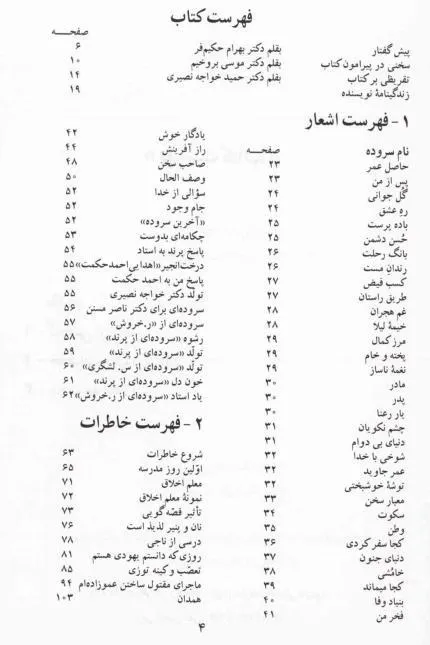 فهرست کتاب
صفحـــه
پیش گفتار بقلم دکتر بهرام حکیم‌فر ۶
سخنی در پیرامون کتاب بقلم دکتر موسی بروخیم ۱۰
تقریظی بر کتاب بقلم دکتر حمید خواجه نصیری ۱۴
زندگینامهٔ نویسنده ۱۹
۱ - فهرست اشعار
نام سروده صفحـــه
حاصل عمر ۲۳
پس از من ۲۳
گُل جوانی ۲۴
رهِ عشق ۲۴
باده پرست ۲۵
حُسن دشمن ۲۵
بانگ رحلت ۲۶
رندانِ مست ۲۶
کسب فیض ۲۷
طریق راستان ۲۷
غم هجران ۲۸
خیمهٔ لیلا ۲۸
مرز کمال ۲۹
پخته و خام ۲۹
نغمهٔ ناساز ۲۹
مادر ۳۰
پدر ۳۰
یار رعنا ۳۰
چشم نکویان ۳۱
دنیای بی دوام ۳۱
شوخی با خدا ۳۲
عمر جاوید ۳۲
توشهٔ خوشبختی ۳۲
معیار سخن ۳۳
سکوت ۳۴
وطن ۳۵
کجا سفر کردی ۳۶
دنیای جنون ۳۷
خامُشی ۳۸
کجا میماند ۳۹
بنیاد وفا ۴۰
فخر من ۴۱
یادگار خوش ۴۲
راز آفرینش ۴۴
صاحب سخن ۴۸
وصف الحال ۵۰
سؤالی از خدا ۵۲
جام وجود ۵۲
«آخرین سروده» ۵۲
چکامه‌ای بدوست ۵۳
پاسخ پرند به استاد ۵۴
درخت انجیر«اهدایی احمد حکمت» ۵۵
پاسخ من به احمد حکمت ۵۵
تولّد دکتر خواجه نصیری ۵۵
سروده‌ای برای دکتر ناصر مسنن ۵۶
سروده‌ای از «ر.خروش» ۵۷
رشوه «سروده‌ای از پرند» ۵۸
تولّد «سروده‌ای از پرند» ۵۹
تولّد «سروده‌ای از س. لشگری» ۶۰
خون دل «سروده‌ای از پرند» ۶۱
یاد استاد «سروده‌ای از ر.خروش» ۶۲
۲ - فهرست خاطرات
شروع خاطرات ۶۳
اوّلین روز مدرسه ۶۵
معلم اخلاق ۷۱
نمونهٔ معلم اخلاق ۷۲
تأثیر قصّه گویی ۷۳
نان و پنیر لذیذ است ۷۶
درسی از ناجی ۷۸
روزی که دانستم یهودی هستم ۸۱
تعصّب و کینه توزی ۸۵
ماجرای مقتول ساختن عموزاده‌ام ۹۴
همدان ۱۰۳
۴